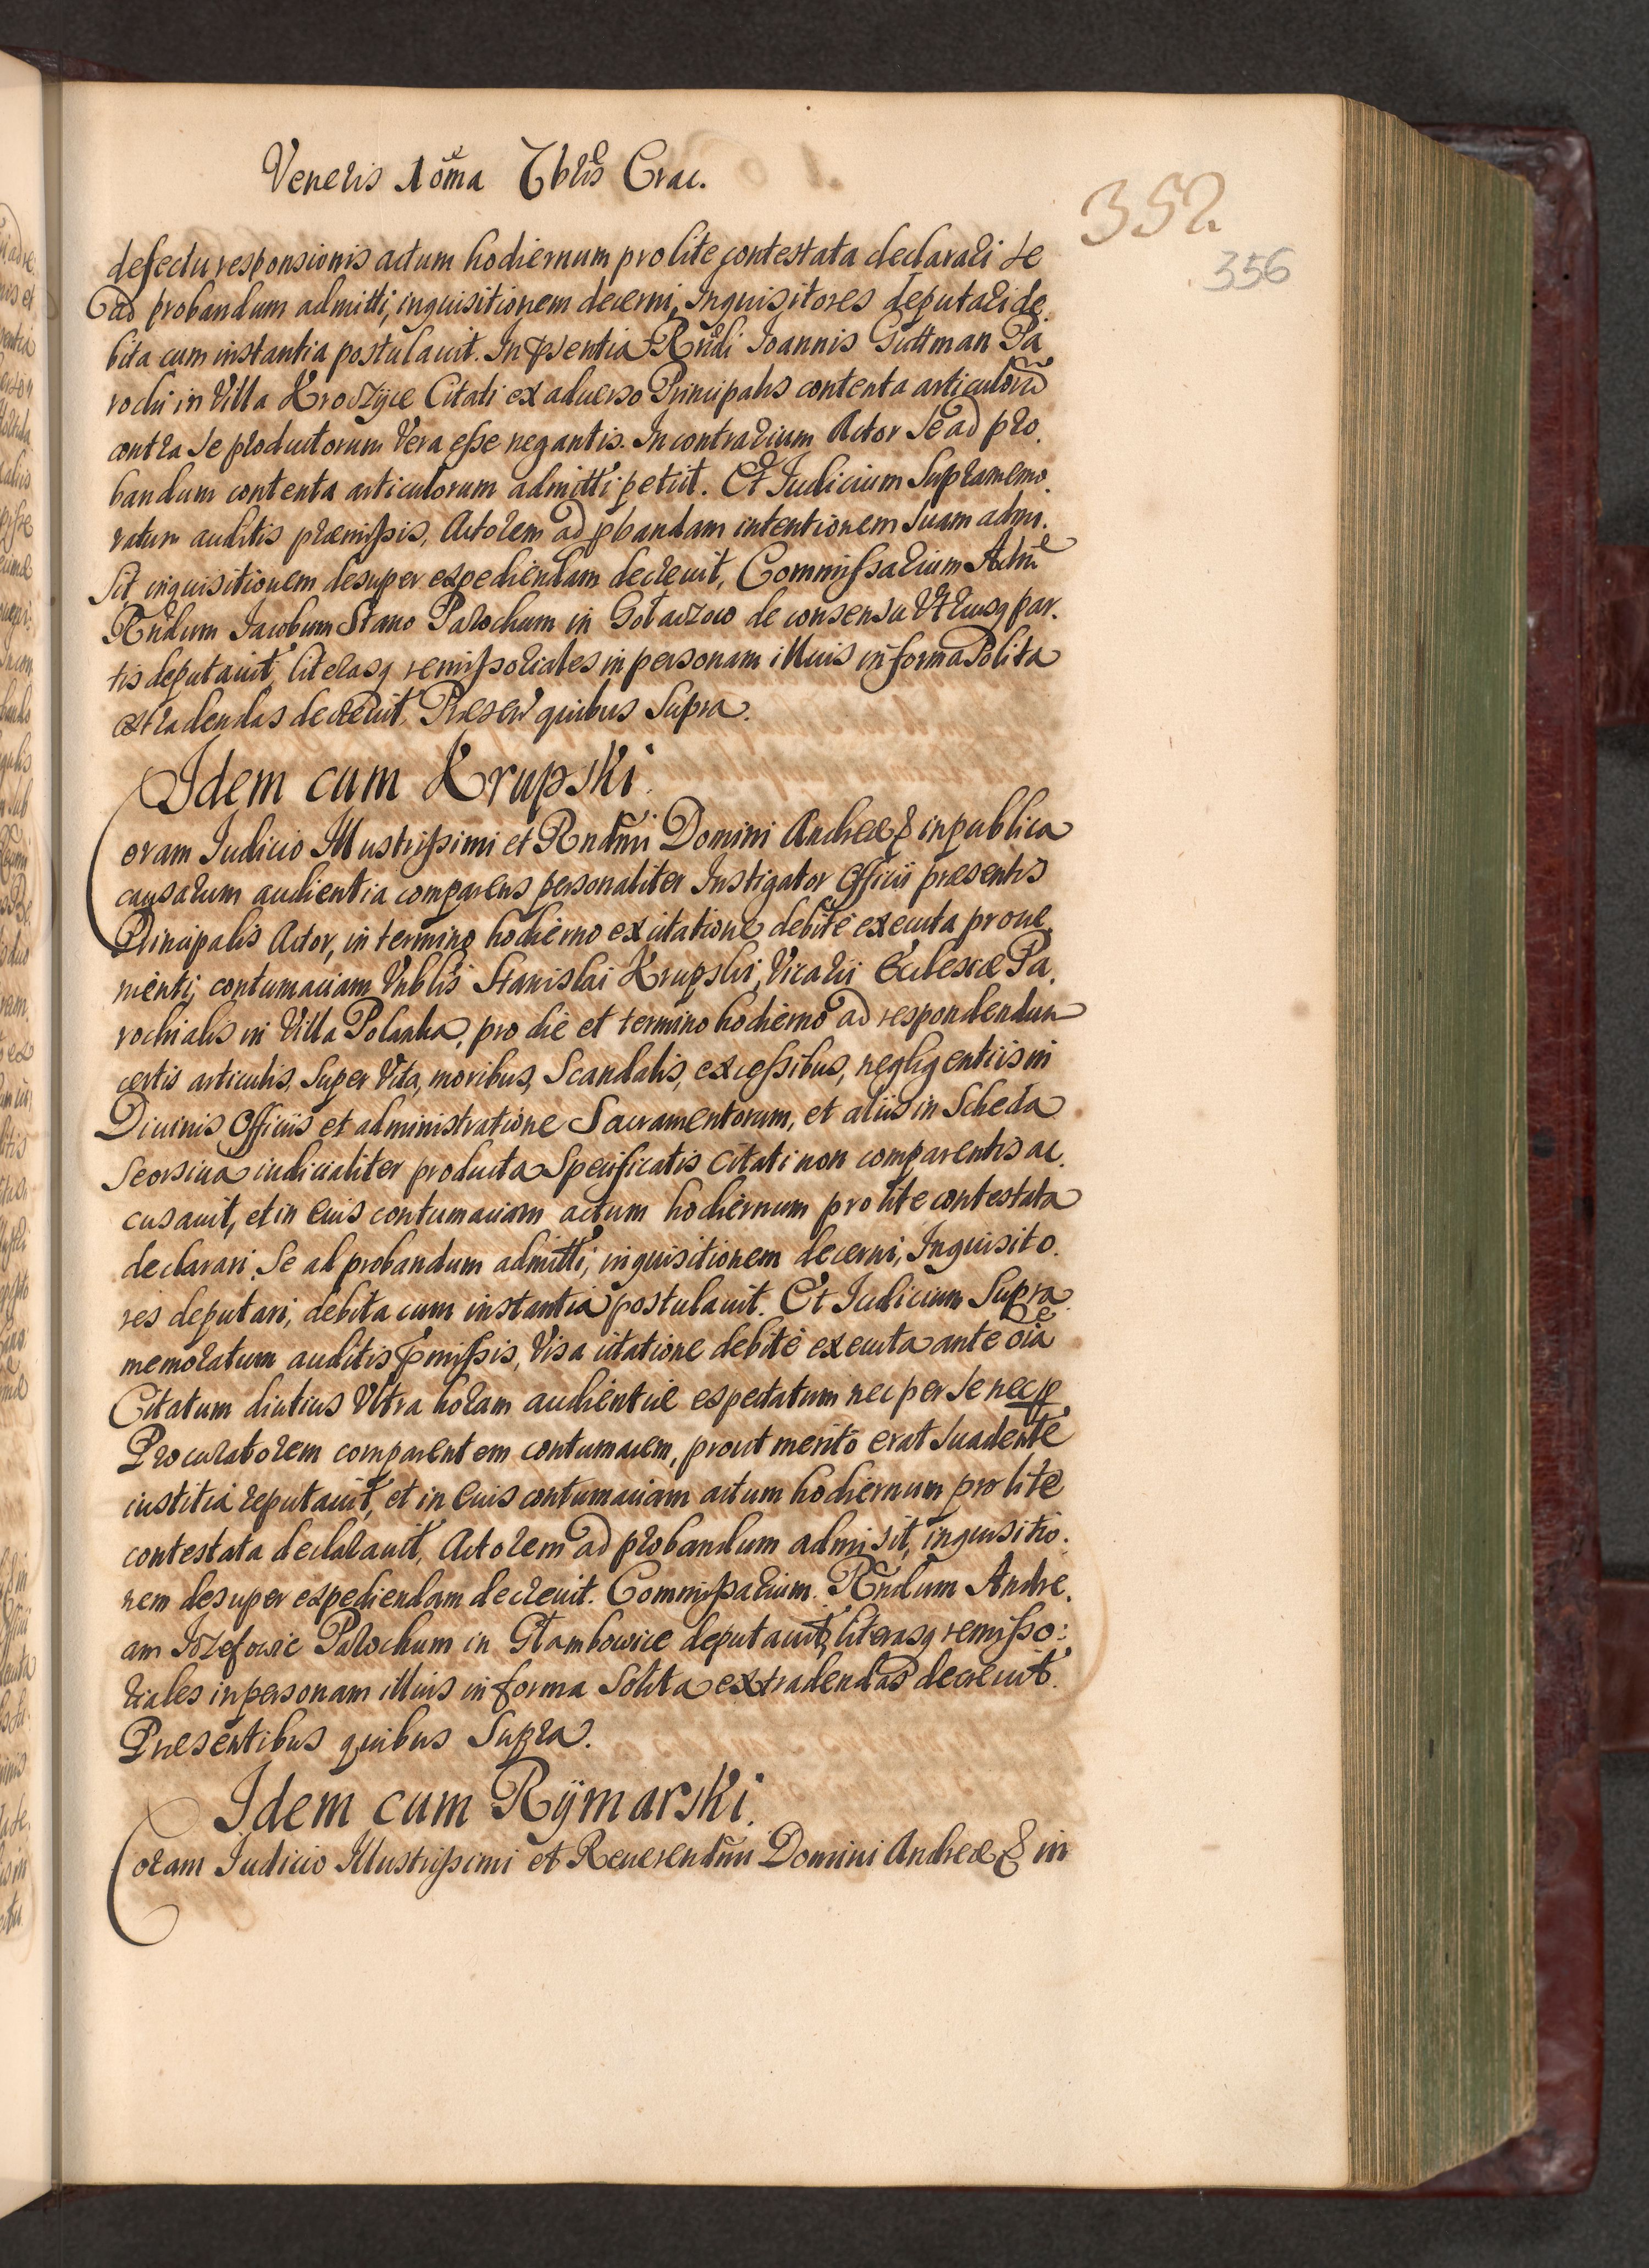 Veneris 10ma 7bris Crac.
352
356
defectu responsionis actum hodiernum pro lite contestata declarari se
ad probandum admitti, inquisitionem decerni, Inquisitores deputari de
bita cum instantia postulavit. In psentia Rndi Joannis Guttman Pa
rochi in Villa Citati ex adverso Principalis contenta articulorũ
contra se productorum Vera esse negantis. In contrarium Actor se ad pro
bandum contenta articulorum admitti petiit. Et Judicium Supramemo
ratum auditis præmissis, Actorem ad pbandam intentionem Suam admi.
sit inquisitionem desuper expediendam decrevit, Commissarium
Rndum Jacobum Stano Parochum in de consensu Utriusq par.
tis deputavit, literasq remissoriales in personam illius in forma Solita
extradendas decrevit, Presen quibus Supra.
Idem cum Krupski.
Coram Judicio Illustrissimi et Rndmi Domini Andreæ & in publica
causarum audientia comparens personaliter Instigator Officii præsentis
Principalis Actor, in termino hodierno ex citatione debite executa prove
nienti, contumaciam Vnblis Stanislai Krupski, Vicarii Ecclesiæ Pa.
rochialis in Villa Polanka, pro die et termino hodierno ad respondendum
certis articulis, Super Vita, moribus, Scandalis, excessibus, negligentiis in
Divinis Officiis et administratione Sacramentorum, et aliis in Scheda
Seorsiva iudicialiter producta Specificatis citati non comparentis ac.
cusavit, et in Eius contumaciam actum hodiernum pro lite contestata
declarari. Se ad probandum admitti, inquisitionem decerni, Inquisito.
res deputari, debita cum instantia postulavit. Et Judicium Supra
memoratum auditis pmissis, Visa citatione debite executa ante oia
Citatum diutius Ultra horam audientiæ expectatum nec per Se nec p
Procuratorem comparentem contumacem, prout merito erat Suadente
iustitia reputavit, et in Euis contumaciam actum hodiernum pro lite
contestata declaravit, Actorem ad probandum admisit, inquisitio.
nem desuper expediendam decrevit. Commissarium. Rndum Andre.
am Jozefowic Parochum in deputavit, literasq remisso:
riales in personam illius in forma Solita extradendas decrevit.
Presentibus quibus Supra.
Idem cum Rÿmarski.
Coram Judicio Illustrissimi et Reverendmi Domini Andreæ & in